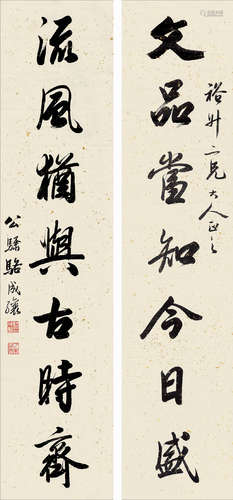 文品當知今日盛
裕升二兄大人正之
流風猶與古時齊
公驌駱成驤